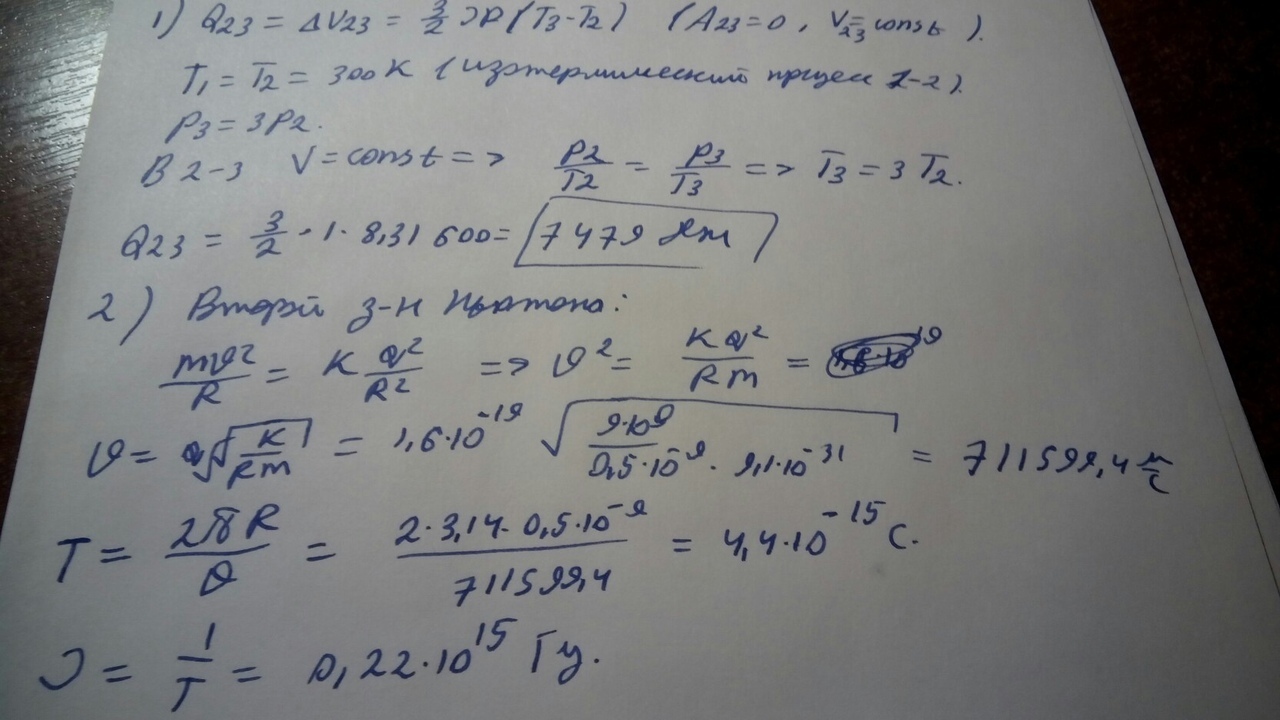 1) Q23 = ΔU23 = 3/2 νR (T3-T2) (A23=0, V23=const).
T1 = T2 = 300 К (изотермический процесс 1-2).
P3 = 3P2.
В 2-3 V = const => P2/T2 = P3/T3 => T3 = 3 T2.
Q23 = 3/2 · 1 · 8,31 600 = 7479 Дж
2) Второй з-н Ньютона:
mϑ²/R = K q²/R² => ϑ² = K q²/Rm =
ϑ = q√(K/Rm) = 1,6·10⁻¹⁹ √(9·10⁹/0,5·10⁻⁹ · 9,1·10⁻³¹) = 711599,4 м/с
T = 2πR/ϑ = 2·3,14·0,5·10⁻⁹/711599,4 = 4,4·10⁻¹⁵ с.
ν = 1/T = 0,22·10¹⁵ Гц.